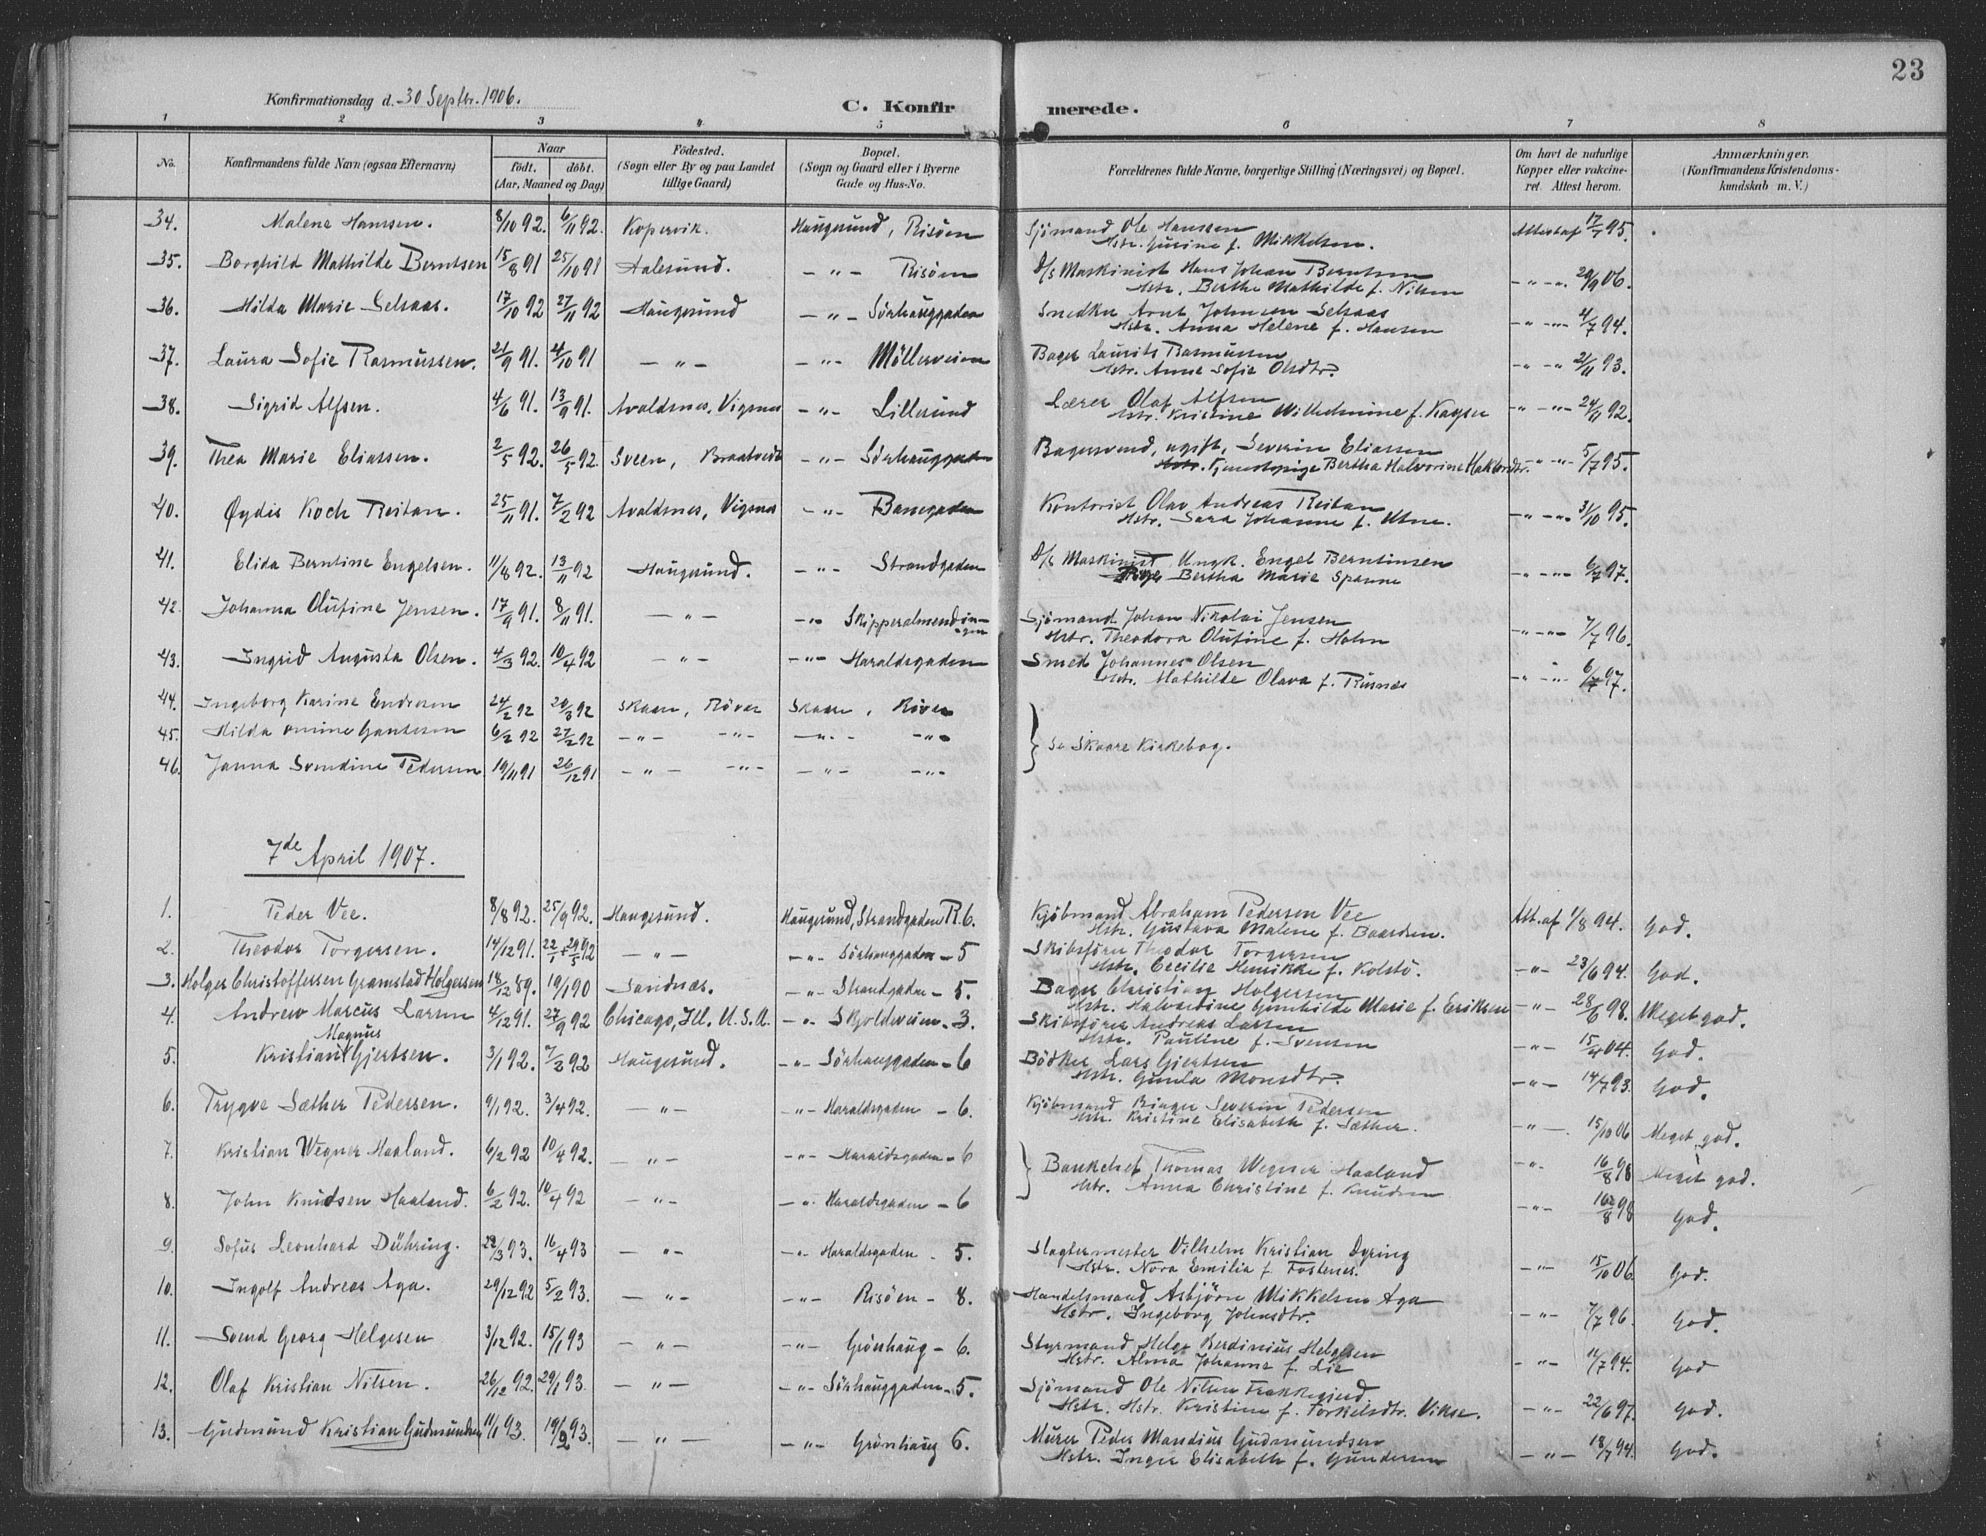 23
Konfirmationsdag d. 30 Septbr. 1906.
C. Konfirmerede.
1 2 3 4 5 6 7 8
No. Konfirmandens fulde Navn (ogsaa Efternavn) Naar födt. döbt. (Aar, Maaned og Dag) Födested. (Sogn eller By og paa Landet tillige Gaard) Bopæl. (Sogn og Gaard eller i Byerne Gade og Hus-No. Forældrenes fulde Navne, borgerlige Stilling (Næringsvei) og Bopæl. Om havt de naturlige Kopper eller vakcineret. Attest herom. Anmærkninger. (Konfirmandens Kristendomskundskab m. V.)
34. Malene Hanssen. 8/10 92. 6/11 92. Kopervik. Haugesund, Risöen Sjömand Ole Hanssen
Hstr. Gurine f. Mikkelsen. Attest af 17/7 95.
35. Borghild Mathilde Berntsen 15/8 91 25/10 91 Aalesund. -"- Risöen D/s Maskinist Hans Johan Berntsen
Hstr. Berthe Mathilde f. Nilsen -"- "- 29/9 06.
36. Hilda Marie Selsaas. 17/10 92 27/11 92 Haugesund -"- Sörhauggaden Snedker Arnt Johnsen Selsaas
Hstr. Anna Helene f. Hansen -"- "- 4/7 94.
37. Laura Sofie Rasmussen. 21/9 91. 4/10 91 -"- -"- Möllerveien Bager Laurits Rasmussen
Hstr. Anne Sofie Olsdtr. -"- "- 21/11 93.
38. Sigrid Alfsen. 4/6 91. 13/9 91. Avaldsnes, Vigsnes -"- Lillesund Lærer Olaf Alfsen
Hstr. Kristine Wilhelmine f. Kayser -"- "- 24/11 92.
39. Thea Marie Eliassen. 2/5 92. 26/5 92. Sveen, Braatvedt -"- Sörhauggaden Bagersvend, ugift, Severin Eliassen
Bertha Halvorine -"- "- 5/7 95.
40. Øydis Koch Reitan. 25/11 91. 7/2 92 Avaldsnes, Vigsnes -"- Banegaden Kontorist Olav Andreas Reitan
Hstr. Sara Johanne f. Utne. -"- "- 31/10 95.
41. Elida Berntine Engelsen. 11/8 92. 13/11 92 Haugesund. -"- Strandgaden D/s Maskinist Ungk. Engel Berntinsen
Pige Bertha Marie Spanne -"- "- 6/7 97.
42. Johanna Olufine Jensen. 17/9 91. 8/11 91. -"- -"- Skipperalmendingen Sjömand Johan Nikolai Jensen
Hstr. Theodora Olufine f. Holm -"- "- 7/7 96.
43. Ingrid Augusta Olsen. 4/3 92. 10/4 92 -"- -"- Haraldsgaden Smed Johannes Olsen
Hstr. Mathilde Olava f. -"- "- 6/7 97.
44. Ingeborg Karine Endresen 24/2 92 20/3 92 Skaare, Röver Skaare, Röver
45. Hilda 6/2 92 27/2 92 -"- -"- -"- -"- Se Skaare Kirkebog.
46. Janna Svendine Pedersen 19/11 91 26/12 91 -"- -"- -"- -"-
7de April 1907.
1. Peder Vee. 8/8 92. 25/9 92. Haugesund. Haugesund, Strandgaden R. 6. Kjöbmand Abraham Pedersen Vee
Hstr. Gustava Malene f. Baardsen. Att. af 1/8 94. God.
2. Theodor Torgersen. 14/12 91. 22/1 + 29/5 92 -"- -"- Sörhauggaden - 5 Skibsförer Theodor Torgersen
Hstr. Cecilie Henrikke f. Kolstö. -"- 23/6 94. God.
3. Holger Christoffersen Gramstad Holgersen 18/12 89. 19/1 90 Sandnæs. -"- Strandgaden - 5. Bager Christian Holgersen
Hstr. Halvardine Gunhilde Marie f. Eriksen -"- 28/6 98. Meget god.
4. Andrew Marcus Larsen 4/12 91. 27/9 92 Chicago, Ill. U.S.A. -"- Skjoldeveien - 3. Skibsförer Andreas Larsen
Hstr. Pauline f. Svensen -"- 15/4 04. God.
5. Kristian Magnus Gjertsen. 3/1 92. 7/2 92 Haugesund. -"- Sörhauggaden - 6 Bödker Lars Gjertsen
Hstr. Gunla Monsdtr. -"- 14/7 93. God.
6. Trygve Sæther Pedersen. 9/1 92. 3/4 92. -"- -"- Haraldsgaden - 6. Kjöbmand Birger Severin Pedersen
Hstr. Kristine Elisabeth f. Sæther. -"- 15/10 06 Meget god.
7. Kristian Wegner Haaland. 6/2 92 10/4 92. -"- -"- Haraldsgaden - 6 Bankchef Thomas Wegner Haaland
Hstr. Anna Christine f. Knudsen -"- 16/8 98 Meget god.
8. John Knudsen Haaland. 6/2 92. 10/4 92 -"- -"- Haraldsgaden - 6 -"- 16/8 98 God.
9. Sofus Leonhard Dühring. 22/3 93. 16/4 93 -"- -"- Haraldsgaden - 5. Slagtermester Vilhelm Kristian Dyring
Hstr. Nora Emilia f. Fosternes. -"- 15/10 06 God.
10. Ingolf Andreas Aga. 29/12 92 5/2 93. -"- -"- Risöen - 8. Handelsmand Asbjörn Mikkelsen Aga
Hstr. Ingeborg Johnsdtr. -"- 7/7 96. God.
11. Svend Georg Helgesen 3/12 92. 15/1 93 -"- -"- Grönhaug - 6. Styrmand Helge Berdinius Helgesen
Hstr. Alma Johanne f. Lie -"- 11/7 94. God
12. Olaf Kristian Nilsen. 26/12 92. 29/1 93. -"- -"- Sörhauggaden - 5. Sjömand Ole Nilsen
Hstr. Hstr. Kristine f. Torkelsdtr. Vikse. -"- 22/6 97. God.
13. Gudmund Kristian Gudmundsen 11/1 93. 19/2 93. -"- -"- Grönhaug 6. Murer Peder Mandius Gudmundsen
Hstr. Inger Elisabeth f. Gundersen -"- 18/7 94. God.